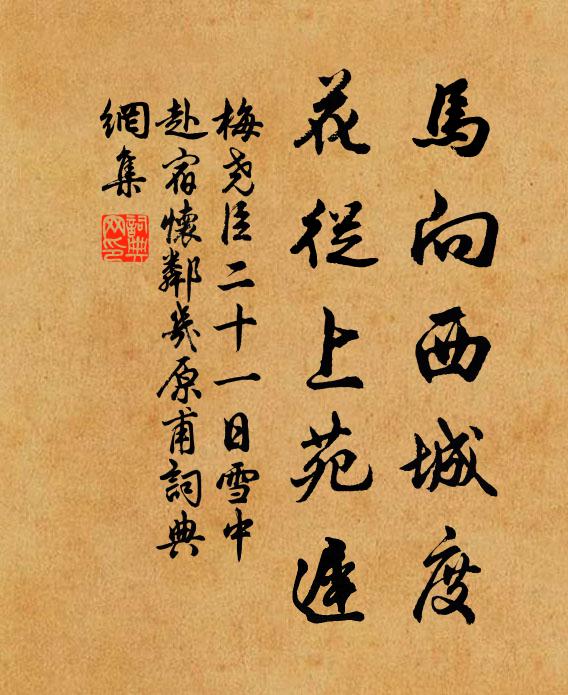 馬向西城度
花從上苑遲
梅堯臣二十一日雪中
赴宿懷鄰幾原甫詞典
網集
詞典網印